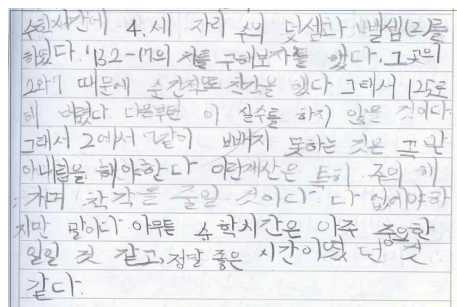 수학시간에 4. 세 자리 수의 덧셈과 뺄셈(2)를
하였다. '132-17의 차를 구해보자'를 했다. 그곳의
2와7 때문에 순간적으로 착각을 했다 그래서 125로
해 버렸다 다음부턴 이 실수를 하지 않을 것이다
그래서 2에서 7같이 빼빼지 못하는 것은 꼭 받
아내림을 해야한다 이런계산은 특히 주의 해
가며 착각을 줄일 것이다 다 없어야하
지만 말이다 아무튼 수학시간은 아주 중요한
일일 것 같고, 정말 좋은 시간이였던 것
같다.